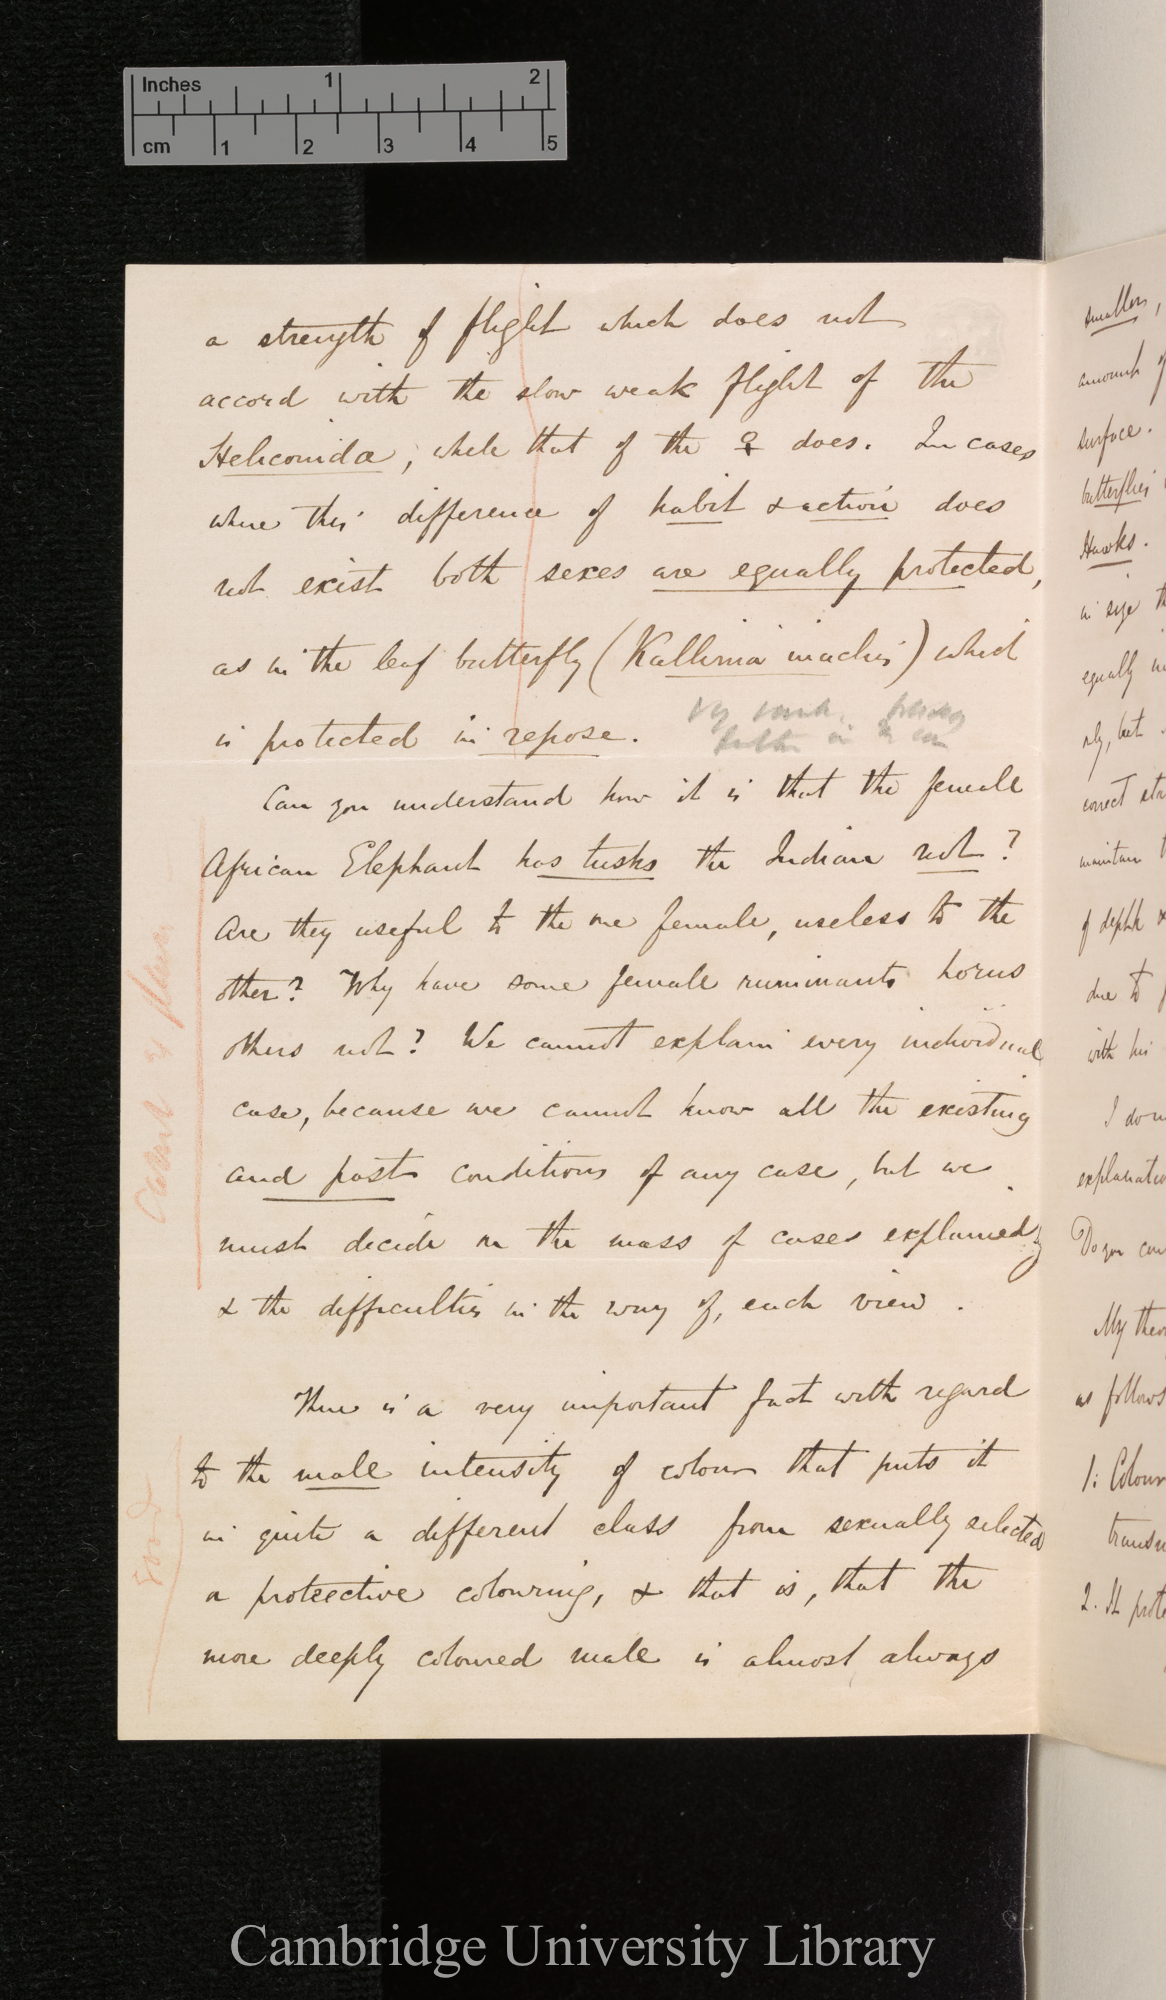 Inches 1 2
cm 1 2 3 4 5
a strength of flight which does not
accord with the slow weak flight of the
Heliconidæ, while that of the ♀ does. In cases
where this difference of habit & action does
not exist both sexes are equally protected,
as in the leaf butterfly (Kallima inachis) which
is protected in repose.
Can you understand how it is that the female
African Elephant has tusks the Indian not?
Are they useful to the one female, useless to the
other? Why have some female ruminants horns
others not? We cannot explain every individual
case, because we cannot know all the existing
and past conditions of any case, but we
must decide on the mass of cases explained,
& the difficulties in the way of, each view.
There is a very important fact with regard
to the male intensity of colour that puts it
in quite a different class from sexually selected
a protective colouring, & that is, that the
more deeply coloured male is almost always
Good
smaller,
amount of
surface.
butterflies
Hawks.
in size th
equally in
rly, but
correct
maintain t
of depth &
due to
with his
I do n
explanatio
Do you con
My theor
as follows
1: Colour
transm
2. It prote
Cambridge University Library